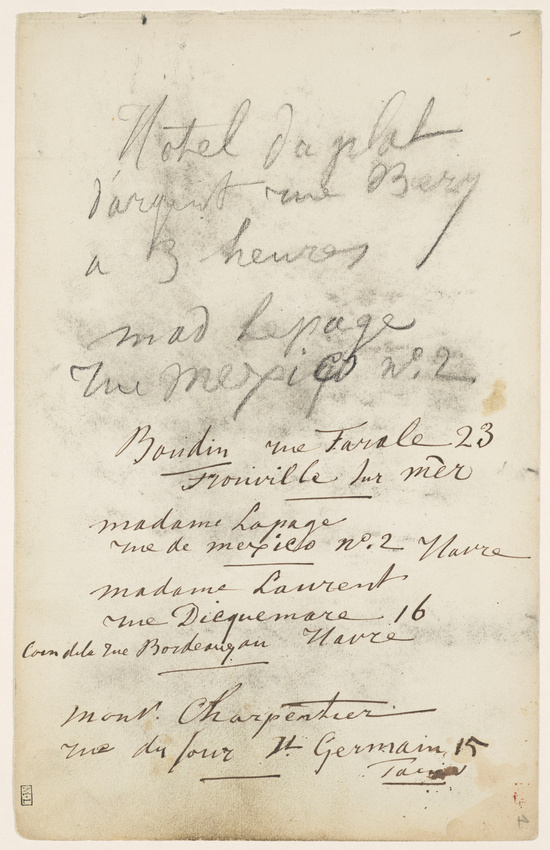 Hotel du plat
d'argent rue Bery
a 3 heures
mad Lepage
rue mexico nº. 2.
Boudin rue Farale 23
Trouville sur mer
madame Lapage
rue de mexico nº. 2 Havre
madame Laurent
rue Dicquemare 16
Coin dela rue Bordeaux au Havre
monsr. Charpentier
rue du four St Germain, 15